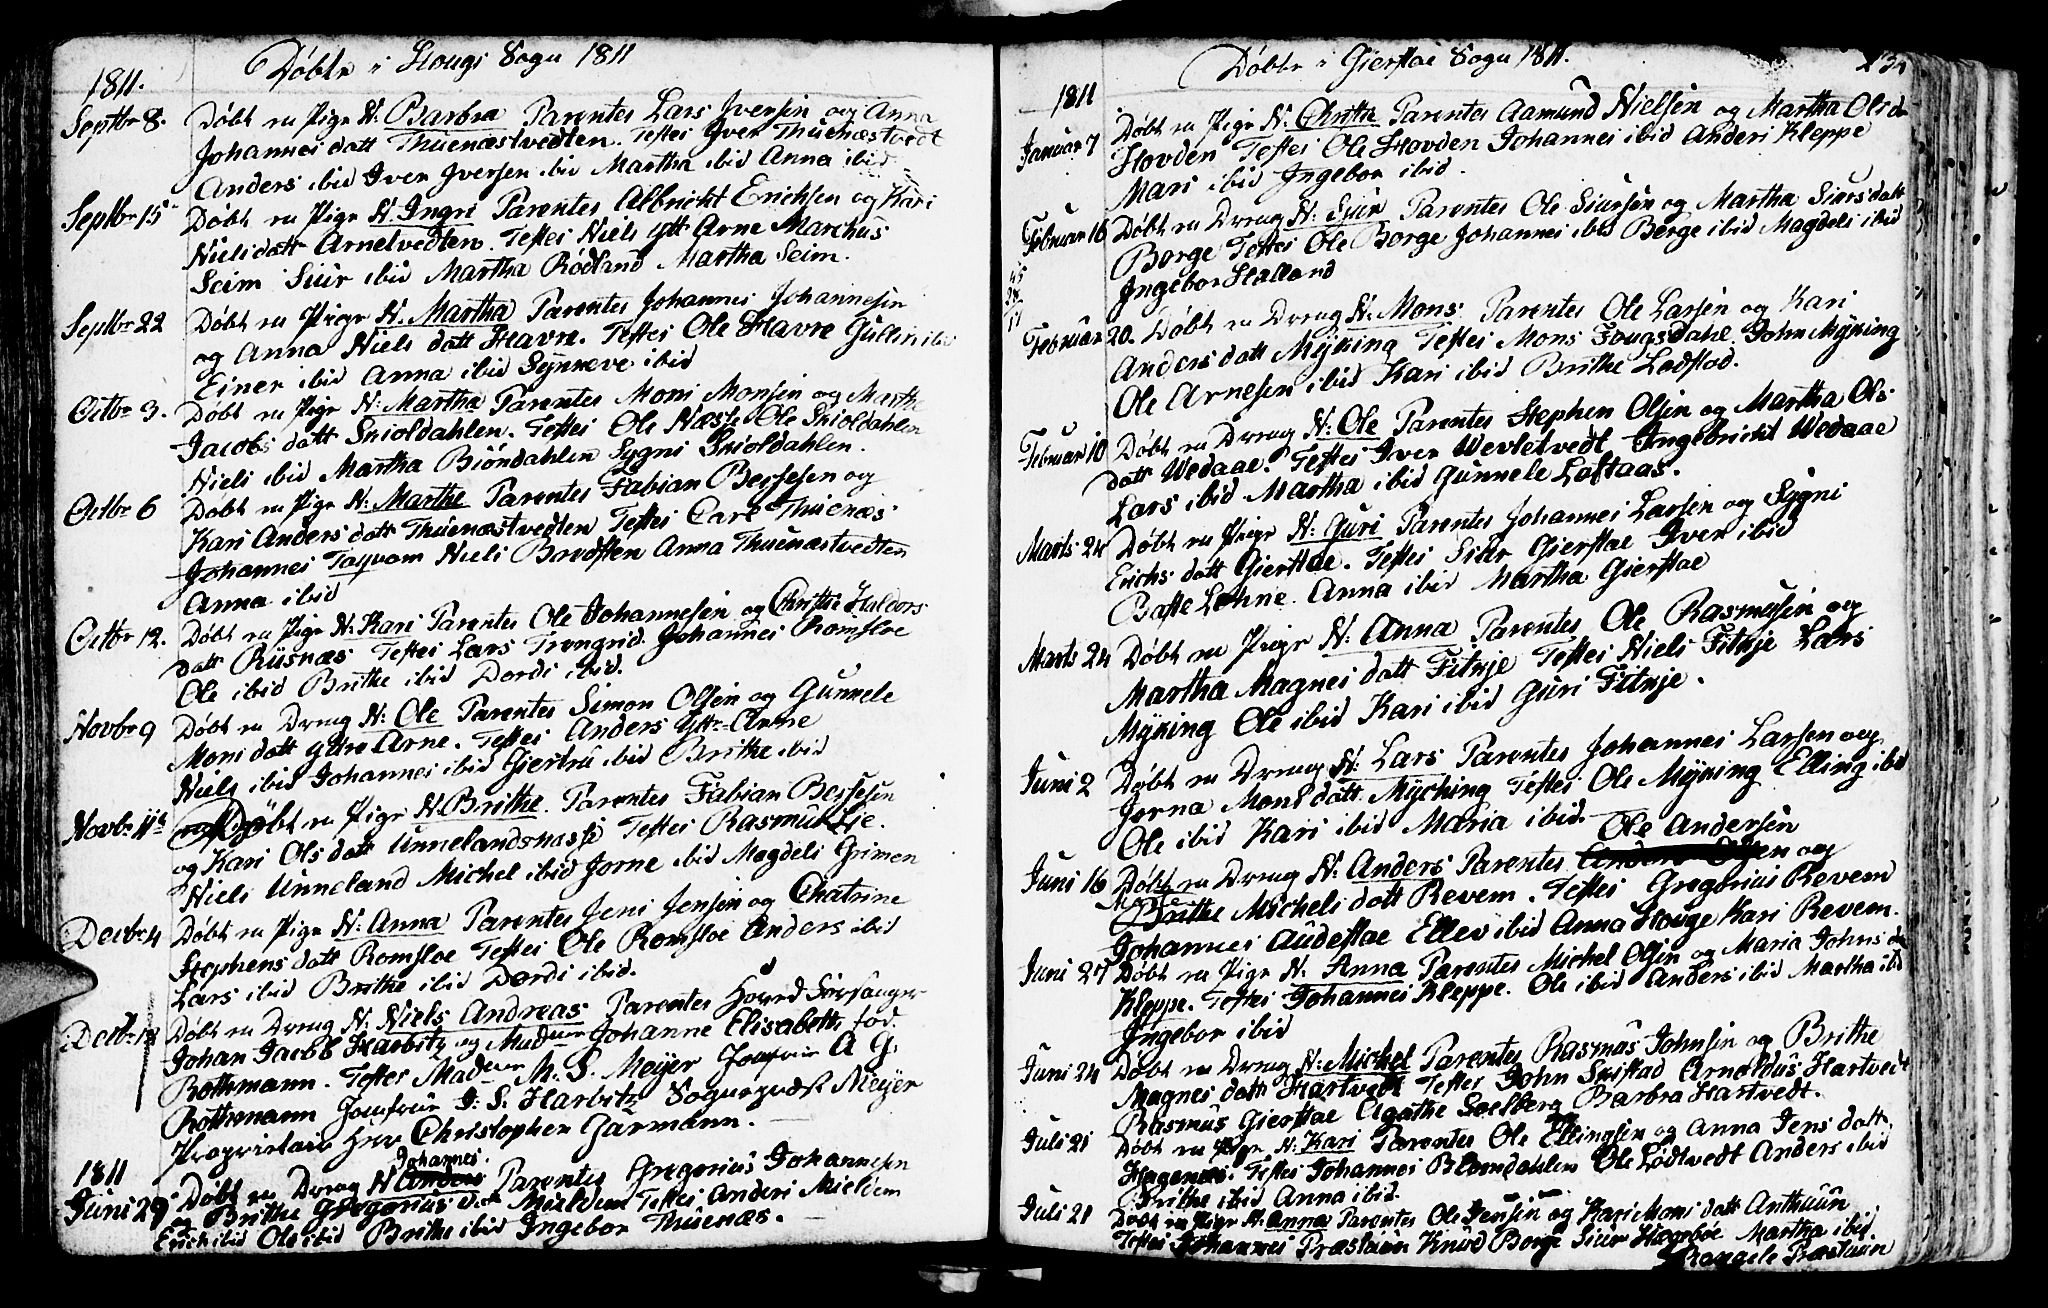 Døbte i Hougs Sogn 1811
1811.
Septbr 8. Døbt en Pige N: Barbra Parentes Lars Iversen og Anna
Johannes datt Thuenæstvedten. Testes Iver Thuenæstvedt
Anders ibid Iver Iversen ibid Martha ibid Anna ibid
Septbr 15 Døbt en Pige N: Ingri Parentes Albricht Erichsen og Kari
Niels datt Arnetvedten. Testes Niels ytt Arne Marchus
Seim Siur ibid Martha Rødland Martha Seim.
Septbr 22 Døbt en Pige N: Martha Parentes Johannes Johannesen
og Anna Niels datt Havre. Testes Ole Havre Gullin ibid
Einer ibid Anna ibid Synneve ibid
Octbr 3. Døbt en Pige N: Martha Parentes Mons Monsen og Marthe
Jacobs datt Skioldahlen. Testes Ole Næste Ole Skioldahlen
Niels ibid Martha Biöndahlen Sygni Skioldahlen.
Octbr 6 Døbt en Pige N: Marthe Parentes Fabian Bersesen og
Kari Anders datt Thuenæstvedten Testes Carl Thuenæs
Johannes Tayvam Niels Bredsten Anna Thuenæstvedten
Anna ibid
Octbr 12. Døbt en Pige N: Kari Parentes Ole Johannesen og Christie Haldors
datt Rüsnæs Testes Lars Trengrid. Johannes Romsloe
Ole ibid Brithe ibid Dordi ibid.
Novbr 9 Døbt en Dreng N: Ole Parentes Simon Olsen og Gunnele
Mons datt Ytre Arne. Testes Anders Ytre Arne
Niels ibid Johannes ibid Giertru ibid Brithe ibid
Novbr 11 Døbt en Pige N: Brithe. Parentes Fabian Bersesen
og Kari Ols datt Unnelandsnasse Testes Rasmus
Niels Unneland Michel ibid Jorne ibid Magdeli Grimen
Decbr 4 Døbt en Pige N: Anna Parentes Jens Jensen og Chatrine
Stephens datt Romsloe Testes Ole Romsloe Anders ibid
Lars ibid Brithe ibid Dordi ibid.
Decbr Døbt en Dreng N: Niels Andreas Parentes Forsanger
Johan Jacob Harbitz og Mad Johanne Elisabeth fød.
Rothmann. Testes Mad M. S. Meyer Jomfrue A G.
Rothmann Jomfrue I. S. Harbitz Sognepræst Meyer
Proprietair Herr Christopher Garmann.
1811 Johannes
Juni 29 Døbt en Dreng N Anders Parentes Gregorius Johannesen
og Brithe Gregorius datt Mieldem Testes Anders Mieldem
Erich ibid Ole ibid Brithe ibid Ingebor Thuenæs.
Døbte i Gierstae Sogn 1811.
1811
Januar 7 Døbt en Pige N: Christie Parentes Aamund Nielsen og Martha Ols d
Hovden Testes Ole Hovden Johannes ibid Anders Kleppe
Mari ibid Ingebor ibid.
Februar 16 Døbt en Dreng N: Siur Parentes Ole Siursen og Martha Siursdatt
Borge Testes Ole Borge Johannes ibid Børge ibid Magdeli ibid
Ingebor Hatland
Februar 20. Døbt en Dreng N: Mons. Parentes Ole Larsen og Kari
Anders datt Mÿking Testes Mons Fougsdahl John Mÿking
Ole Arnesen ibid Kari ibid Brithe Lødstod.
Februar 10 Døbt en Dreng N: Ole Parentes Stephen Olsen og Martha Ols
datt Wedaae. Testes Iver Wevletvedt Ingebricht Wedaae
Lars ibid Martha ibid Gunnele Loftaas.
Marts 24 Døbt en Pige N: Guri Parentes Johannes Larsen og Sygni
Erichs datt Gierstae. Testes Siur Gierstae Iver ibid
Baste Lohne. Anna ibid Martha Gierstae
Marts 24 Døbt en Pige N: Anna Parentes Ole Rasmusen og
Martha Magnes datt Fitkje Testes Niels Fitkje Lars
Mÿking Ole ibid Kari ibid Guri Fitkje.
Juni 2 Døbt en Dreng N: Lars Parentes Johannes Larsen og
Jorna Mons datt Mÿching Testes Ole Mÿking Elling ibid
Ole ibid Kari ibid Maria ibid.
Ole Andersen
Juni 16 Døbt en Dreng N: Anders Parentes og
Brithe Michels datt Revem. Testes Gregorius Revem
Johannes Audestae Ellev ibid Anna Houge Kari Revem.
Juni 27 Døbt en Pige N: Anna Parentes Michel Olsen og Maria Johns d
Kleppe. Testes Johannes Kleppe. Ole ibid Anders ibid Martha ibid
Ingebor ibid
Juni 24 Døbt en Dreng N: Michel Parentes Rasmus Johnsen og Brithe
Magnes datt Hartvedt Testes John Skistad Arnoldus Hartvedt
Rasmus Gierstae Agathe Soelberg Barbra Hartvedt.
Juli 21 Døbt en Pige N: Kari Parentes Ole Ellingsen og Anna Jens datt
Hagenæs. Testes Johannes Blomdahlen Ole Lødtvedt Anders ibid
Brithe ibid Anna ibid.
Juli 21 Døbt en Pige N: Anna Parentes Ole Jensen og Kari Mons datt Anthuun
Testes Johannes Præstuun Knud Borge Siur Hægebøe Martha ibid.
Ragnele Præstuun